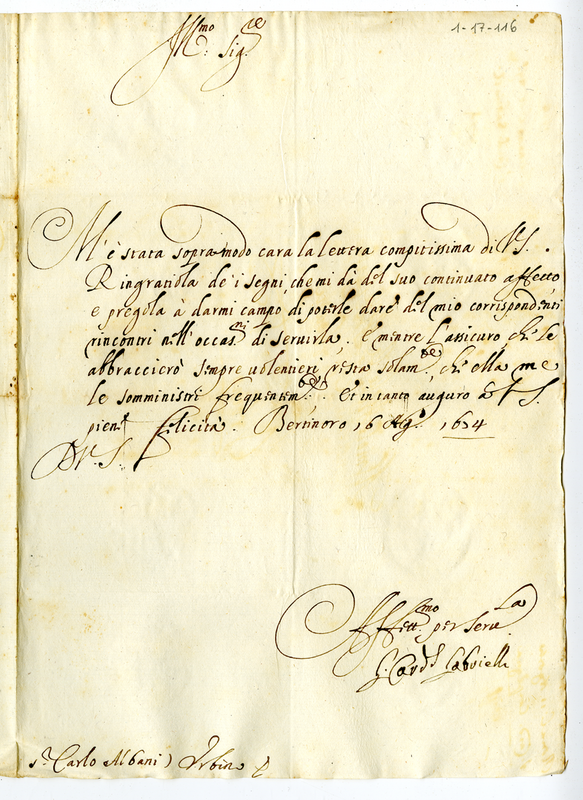 1-17-116
Ill.mo Sig.re
M'è stata sopra modo cara la lettera compitissima di V.S.
Ringratiola de' i segni, che mi dà del suo continuato affetto,
e pregola à darmi campo di poterle dare del mio corrispondenti
rincontri nell'occas.ni di seruirla. E mentre l'assicuro che le
abbraccierò sempre uolentieri resta solam.te, che ella me
le somministri frequentem.te. Et in tanto auguro à V.S.
pien. felicità. Bertinoro 16 Ag. 1654
D V.S.
Affett.mo per seru.la
G. Card.l Gabrielli
S.r Carlo Albani) Vrbino